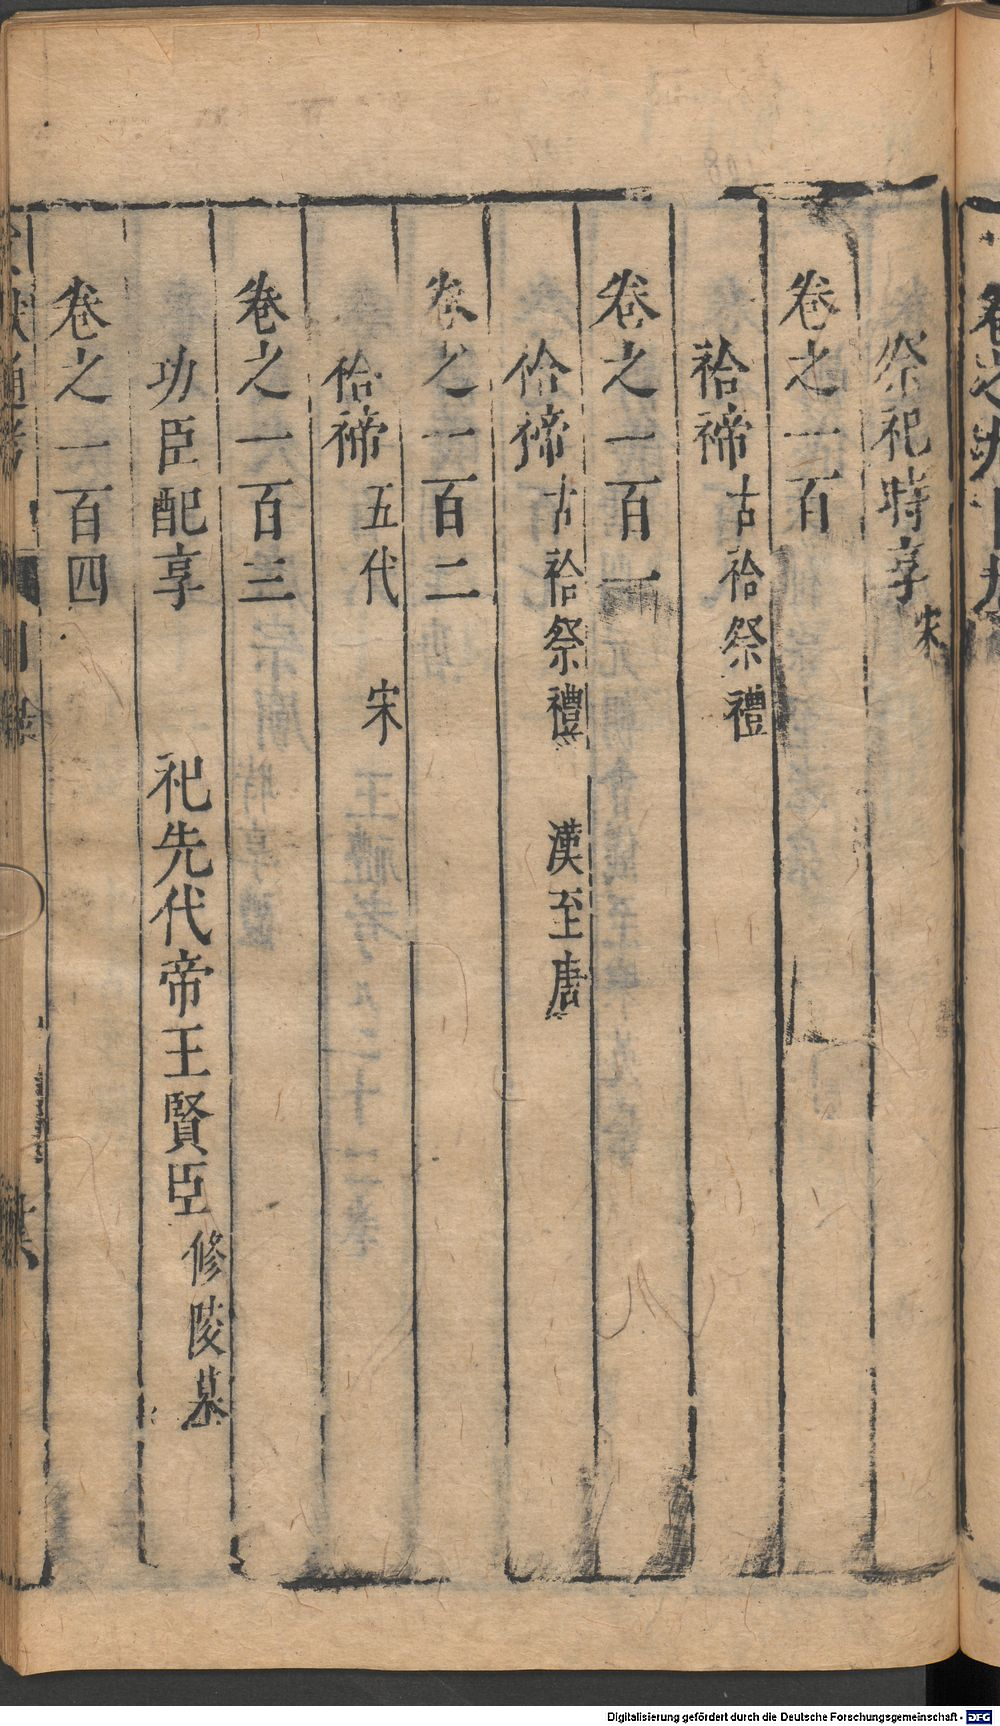 祭祀時享宋
卷之一百
祫禘古祫祭禮
卷之一百一
祫禘古祫祭禮 漢至唐
卷之一百二
祫禘五代 宋
卷之一百三
功臣配享 祀先代帝王賢臣修陵墓
卷之一百四
Digitalisierung gefördert durch die Deutsche Forschungsgemeinschaft - DFG